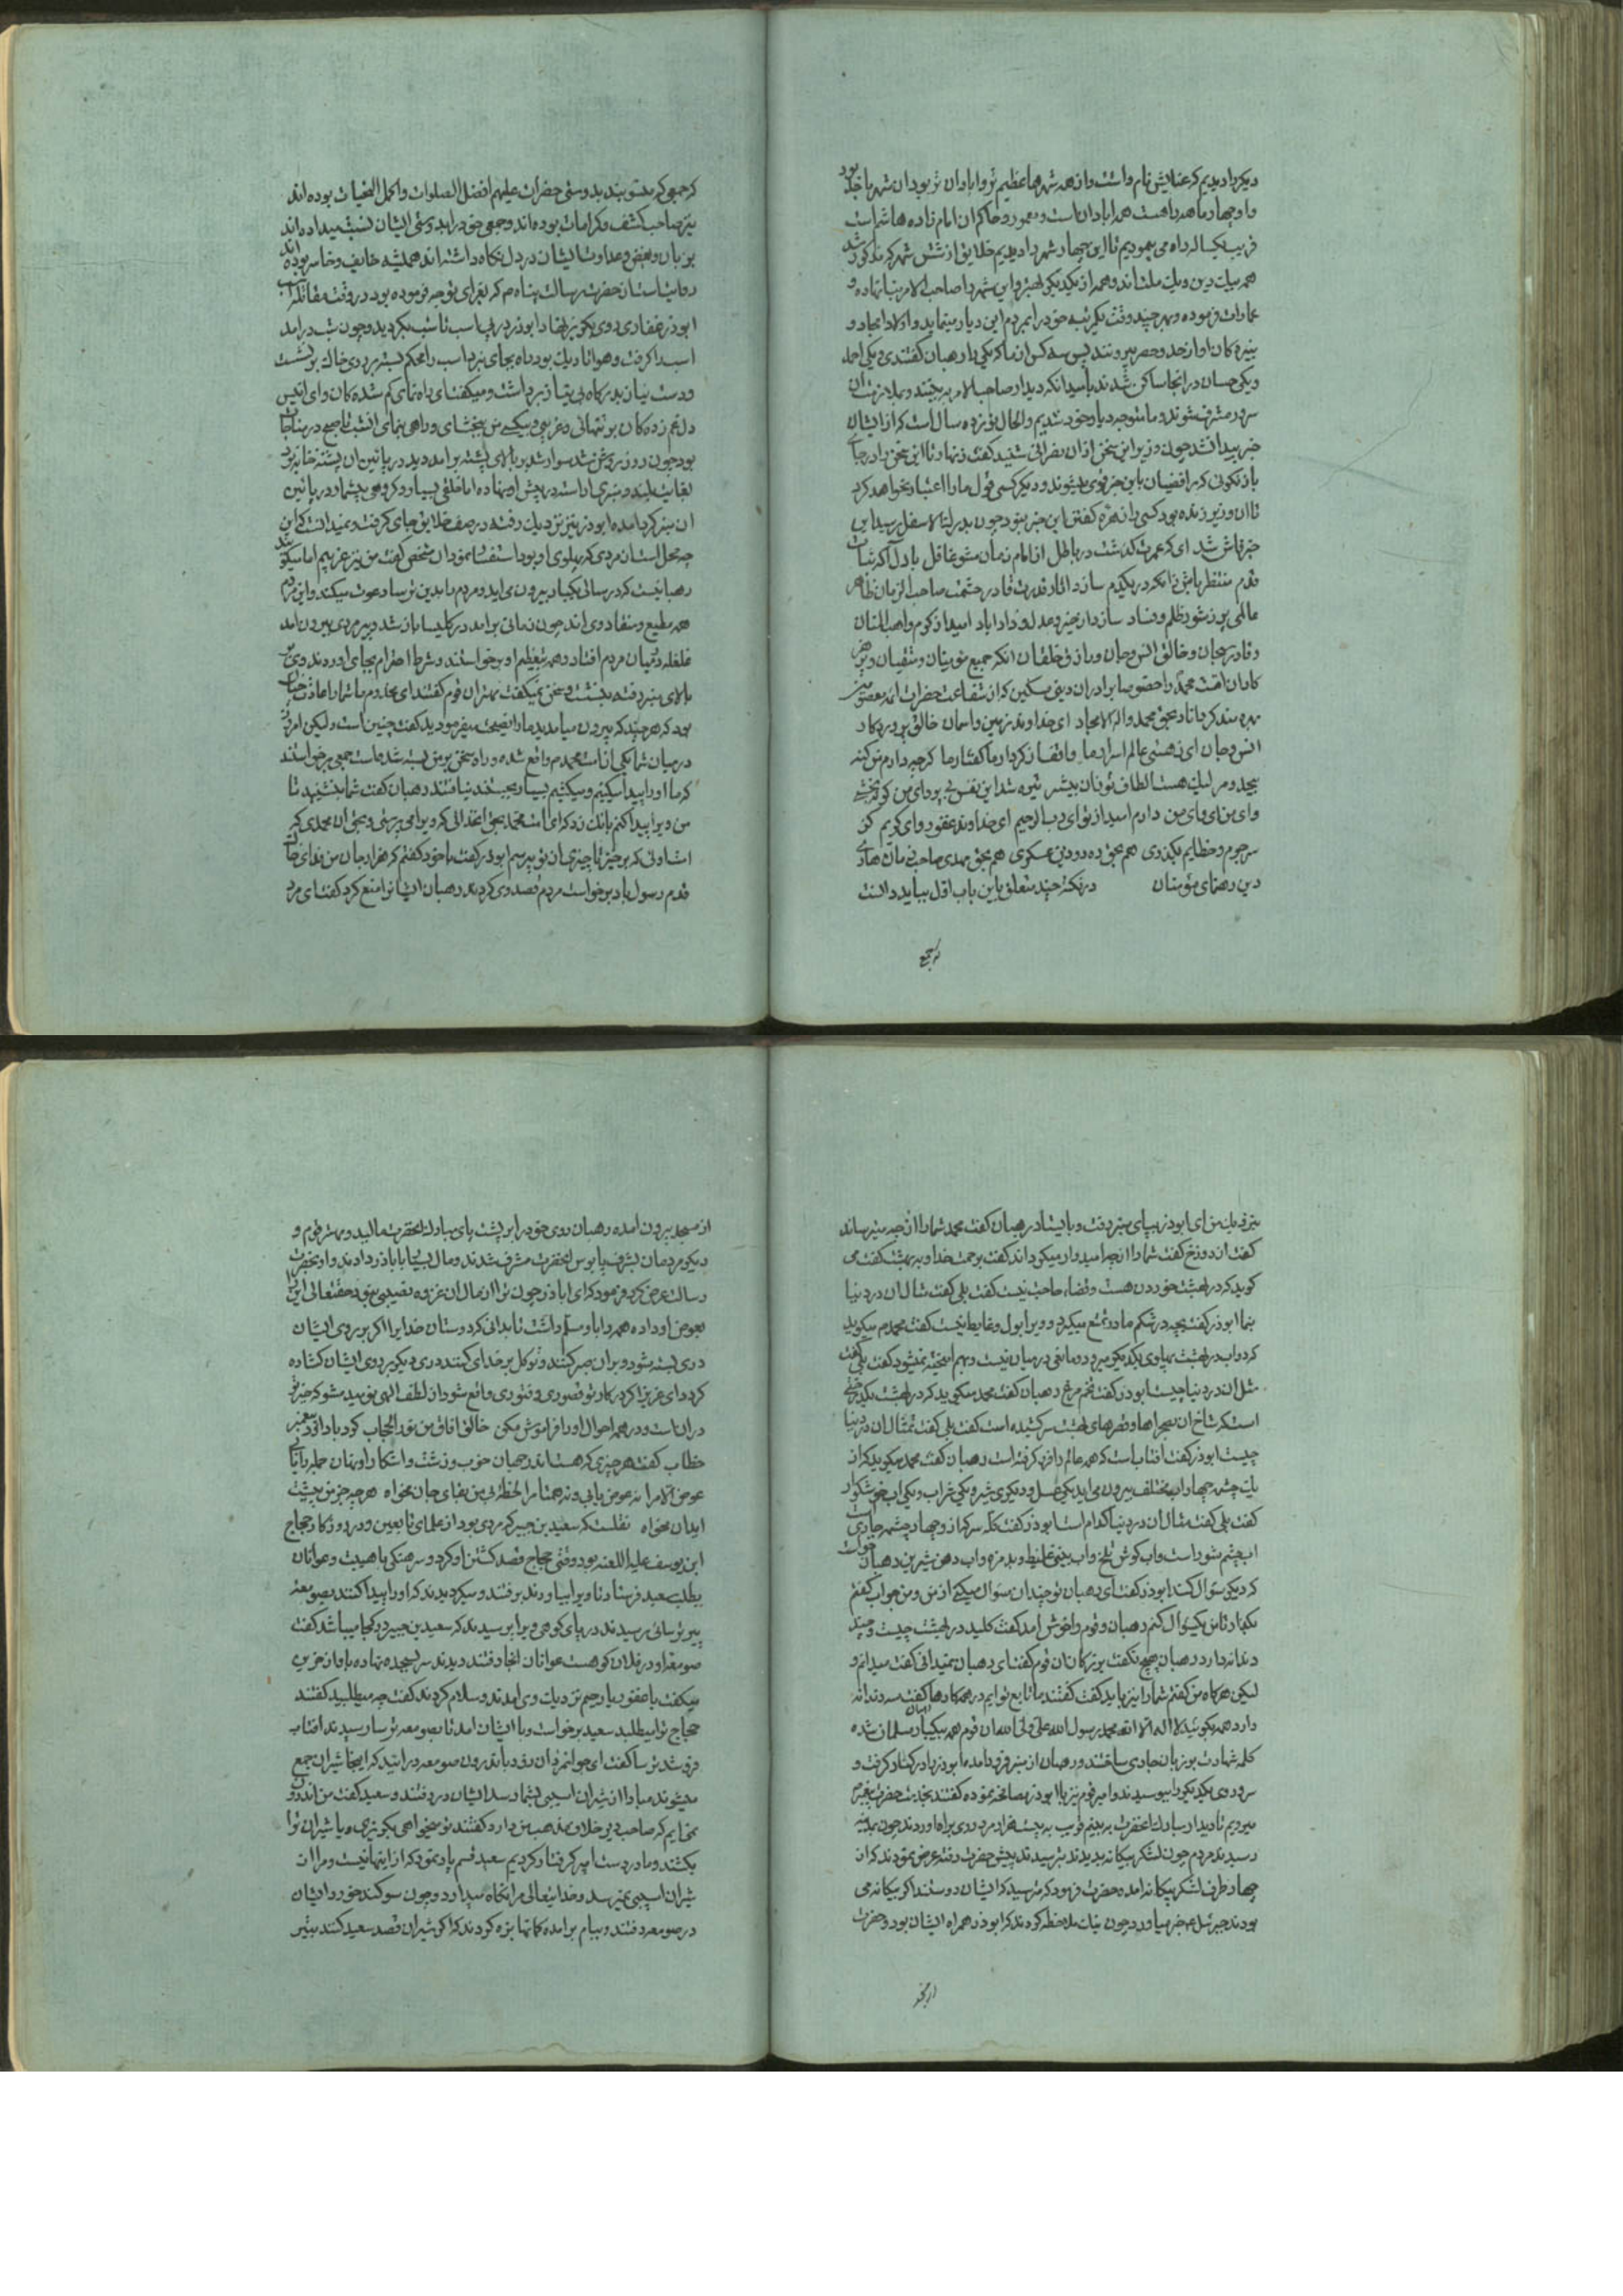 دیکر را دیدیم که عنالیش نام داشت و از همه شهرها عظیم تر و ابادان تر بود ان شهر با خدا بود
و او چهار ماهه راهست همه ابادانست و معمور و حاکم ان امام زاده هاشم است
قریب یکساله راه می پیمودیم تا این چهار شهر را دیدیم خلایق از شش شهر که مذکور شد
همه بیک دین و یک ملت اند و همه از یکدیکر بهتر و این شهر را صاحب الامر بنا نهاده و
عمارات فرموده و بهر چند وقت یکمرتبه خود را بمردم این دیار مینماید و اولاد امجاد و
بنیره کان او از حد و حصر بیرونند پس سه کس از ما که یکی را رهبان کفتندی و یکی احمد
و یکی حسان در انجا ساکن شدند بامید انکه دیدار صاحب الامر به بینند و بملازمت ان
سرور مشرف شوند و ما متوجه دیار خود شدیم و الحال نوزده سال است که از ایشان
خبر پیدا نشد چون وزیر این سخن از ان نصرانی شنید کفت زنهار تا این سخن را در جای
باز نکوئی که رافضیان باین خبر قوی میشوند و دیکر کسی قول ما را اعتبار نخواهد کرد
تا ان وزیر زنده بود کسی را زهره کفتن این خبر نبود چون بدرک الاسفل رسید این
خبر فاش شد ای که عمرت کذشت در باطل از امام زمان مشو غافل با دل آکه ثبات
قدم منتظر باش زانکه در یکدم سازد اثار قدرت قادر حشمت صاحب الزمان ظاهر
عالمی پر ز شور و ظلم و فساد سازد از خیر و عدل و داد اباد امید از کرم واهب المنان
و قادر سبحان و خالق انس و جان و رازق خلقان انکه جمیع مؤمنان و متقیان و پرهیز
کاران امت محمد را خصوصا برادران دینی مسکین که از شفاعت حضرات ائمه معصومین
بهره مند کرداناد بحق محمد واله الامجاد ای خداوند زمین و اسمان خالق پروردکار
انس و جان ای ز هستی عالم اسرار ما واقف از کردار ما کفتار ما کرچه دارم من کنه
بیحد و مر لیک هست الطاف تو زان بیشتر تیره شد این نفس بی پروای من کر نه بخشی
وای من ای وای من دارم امید از تو ای رب الرحیم ای خداوند غفور و ای کریم کز
سر جرم و خطایم بکذری هم بحق ده و دو دین عسکری هم بحق مهدی صاحب زمان هادی
دین رهنمای مؤمنان در نکته چند متعلق باین باب اول بباید دانست
که جمع
که جمعی که منسوبند بدوستی حضرات علیهم افضل الصلوات و اکمل التحیات بوده اند
نیز صاحب کشف و کرامات بوده اند و جمعی خود را بدوستی ایشان نسبت میداده اند
بزبان و بغض و عداوت ایشان در دل نکاه داشته اند همیشه خایف و خاسر بوده اند
روایتست از حضرت رسالت پناه صم که بغزای توجه فرموده بود در وقت مقاتله اسب
ابوذر غفاری روی بکریز نهاد ابوذر در پی اسب تا شب بکردید و چون شب درامد
اسب را کرفت و هوا تاریک بود راه بجای نبرد اسب را محکم بسته بر روی خاک بنشست
و دست نیاز بدرکاه بی نیاز برداشت و میکفت ای راه نمای کم شده کان و ای انیس
دل غم زده کان بر تنهائی و غریبی و بیکسی من ببخشای و راهی بنمای انشب تا صبح در مناجات
بود چون روز روشن شد سوار شد بر بالای پشته برامد دید در پائین ان پشته خانه بود
بغایت بلند و منبری اراسته در پیش او نهاده اما خلقی بسیار و کروهی بیشمار در پائین
ان منبر کرد امده ابوذر نیز نزدیک رفته در صف خلایق جای کرفت و نمیدانست که این
چه محل است از مردی که پهلوی او بود استفسار نمود ان شخص کفت من نیز غریبم اما میکویند
رهبانیست که در سالی یکبار بیرون می اید و مردم را بدین ترسا دعوت میکند و این مردم
همه مطیع و منقاد وی اند چون زمانی برامد در کلیسا باز شد و پیر مردی بیرون امد
غلغله در میان مردم افتاد و همه بتعظیم او برخواستند و شرط احترام بجای اوردند وی بر
بالای منبر رفته بنشست و سخن نمیکفت بهتران قوم کفتند ای مخدوم ما شما را عادت چنان
بود که هر چند که بیرون میامدید ما را نصیحت میفرمودید کفت چنین است ولیکن امروز
در میان شما یکی از امت محمدم واقع شده و راه سخن بر من بسته شده است جمعی برخواستند
که ما او را پیدا میکنیم و میکشیم بسیار بجستند نیافتند رهبان کفت شما بنشینید تا
من ویرا پیدا کنم بانک زد که ای امت محمد بحق انخدائی که ویرا می پرستی و بحق ان محمدی که
امت اوئی که برخیز تا چیزی از تو بپرسم ابوذر کفت با خود کفتم که هزار جان من فدای خاک
قدم رسول باد برخواست مردم قصد وی کردند رهبان ایشانرا منع کرد کفت ای مرد
بنزدیک من ای ابوذر بپای منبر رفت و بایستاد رهبان کفت محمد شما را از چه میترساند
کفت از دوزخ کفت شما را از چه امیدوار میکرداند کفت برحمت خدا و به بهشت کفت می
کوید که در بهشت خوردن هست و قضاء حاجت نیست کفت بلی کفت مثال ان در دنیا
بنما ابوذر کفت بچه در شکم مادر تمتع میکیرد و ویرا بول و غایط نیست کفت محمدم میکوید
که دو اب در بهشت پهلوی یکدیکر میرود و مانعی در میان نیست و بهم امیخته نمیشود کفت بلی کفت
مثل ان در دنیا چیست ابوذر کفت تخم مرغ رهبان کفت محمد میکوید که در بهشت یکدرختی
است که شاخ ان بحجرها و قصرهای بهشت سر کشیده است کفت بلی کفت تمثال ان در دنیا
چیست ابوذر کفت افتاب است که همه عالم را فرو کرفته است رهبان کفت محمد میکوید که از
یک چشمه چهار اب مختلف بیرون می اید یکی عسل و دیکری شیر و یکی شراب و یکی اب خوشکوار
کفت بلی کفت مثال ان در دنیا کدام است ابوذر کفت کله سر که از و چهار چشمه جاری است
اب چشم شور است و اب کوش تلخ و اب بینی غلیظ و بد مزه و اب دهن شیرین رهبان خواست
که دیکر سؤال کند ابوذر کفت ای رهبان تو چندان سؤال میکنی از من و من جواب کفتم
بکذار تا من یکسؤال کنم رهبان و قوم را خوش امد کفت کلید در بهشت چیست و چند
دندانه دارد رهبان هیچ نکفت بزرکان ان قوم کفتند ای رهبان نمیدانی کفت میدانم و
لیکن هر کاه من کفتم شما را نیز باید کفت کفتند ما تابع توایم در همه کارها کفت سه دندانه
دارد همه بکوئید لا اله الا الله محمد رسول الله علی ولی الله ان قوم همه بیکبار مسلمان شده
کلمه شهادت بر زبان جاری ساختند و رهبان از منبر فرود امده ابوذر را در کنار کرفت و
سر و روی یکدیکر را ببوسیدند و امیر قوم نیز با ابوذر مصافحه نموده کفتند بخدمت حضرت پیغمبر
میرویم تا دیدار مبارک انحضرت به بینیم قریب به بیست هزار مرد روی براه اوردند چون بمدینه
رسیدند مردم چون لشکر بیکانه بدیدند بترسیدند پیش حضرت رفته عرض نمودند که از
چهار طرف لشکر بیکانه امده حضرت فرمود که مترسید که ایشان دوستند اکر بیکانه می
بودند جبرئیل خبر میاورد چون نیک ملاحظه کردند که ابوذر همراه ایشان بود و حضرت
از مسجد
از مسجد بیرون امده رهبان روی خود را بر پشت پای مبارک انحضرت مالید و مهتر قوم و
دیکر مردمان بشرف پابوس انحضرت مشرف شدند و مال بسیار با باذر دادند و او بحضرت
رسالت عرض کرد فرمود که ای اباذر چون ترا از مال ان غزوه نصیبی نبود حقتعالی این را
بعوض او داده همه را با و مسلم داشت تا بدانی که دوستان خدا را اکر بر روی ایشان
دری بسته شود و بر ان صبر کنند و توکل بر خدای کنند دری دیکر بر روی ایشان کشاده
کردد ای عزیز اکر در کار تو قصوری و فتوری واقع شود از لطف الهی نومید مشو که خیر تو
در ان است و در همه احوال او را فراموش مکن خالق افاق من نور الحجاب کرد با داود پیغمبر
خطاب کفت هر چیزی که هست اندر جهان خوب و زشت و اشکارا و نهان جمله را یابی
عوض الا مرا نه عوض یابی و نه همتا مرا لحظه بی من بقای جان مخواه هر چه جز من پیشت
اید ان مخواه نقلست که سعید بن جبیر که مردی بود از علمای تابعین و در روزکار حجاج
ابن یوسف علیه اللعنه بود وقتی حجاج قصد کشتن او کرد و سرهنکی با هیبت و عوانان
بطلب سعید فرستاد تا ویرا بیاورند برفتند و میکردیدند که او را پیدا کنند بصومعه
پیر ترسائی رسیدند در پای کوهی ویرا پرسیدند که سعید بن جبیر در کجا میباشد کفت
صومعه او در فلان کوهست عوانان انجا رفتند دیدند سر بسجده نهاده باواز حزین
میکفت یا غفور یا رحیم نزدیک وی امدند و سلام کردند کفت چه میطلبید کفتند
حجاج ترا میطلبد سعید برخواست و با ایشان امد تا بصومعه ترسا رسیدند افتاب
فرو شد ترسا کفت ای جوانمردان زود باندرون صومعه درائید که اینجا شیران جمع
میشوند مبادا از شیران اسیبی بشما رسد ایشان در رفتند و سعید کفت من اندرون
نمی ایم که صاحب دیر خلاف مذهب من دارد کفتند تو میخواهی بکریزی و یا شیران ترا
بکشند و ما در دست امیر کرفتار کردیم سعید قسم یاد نمود که از اینها نیست و مرا از
شیران اسیبی نمیرسد و خدایتعالی مرا نکاه میدارد و چون سوکند خورد ایشان
در صومعه رفتند و ببام برامده کمانها بزه کردند که اکر شیران قصد سعید کنند بتیر